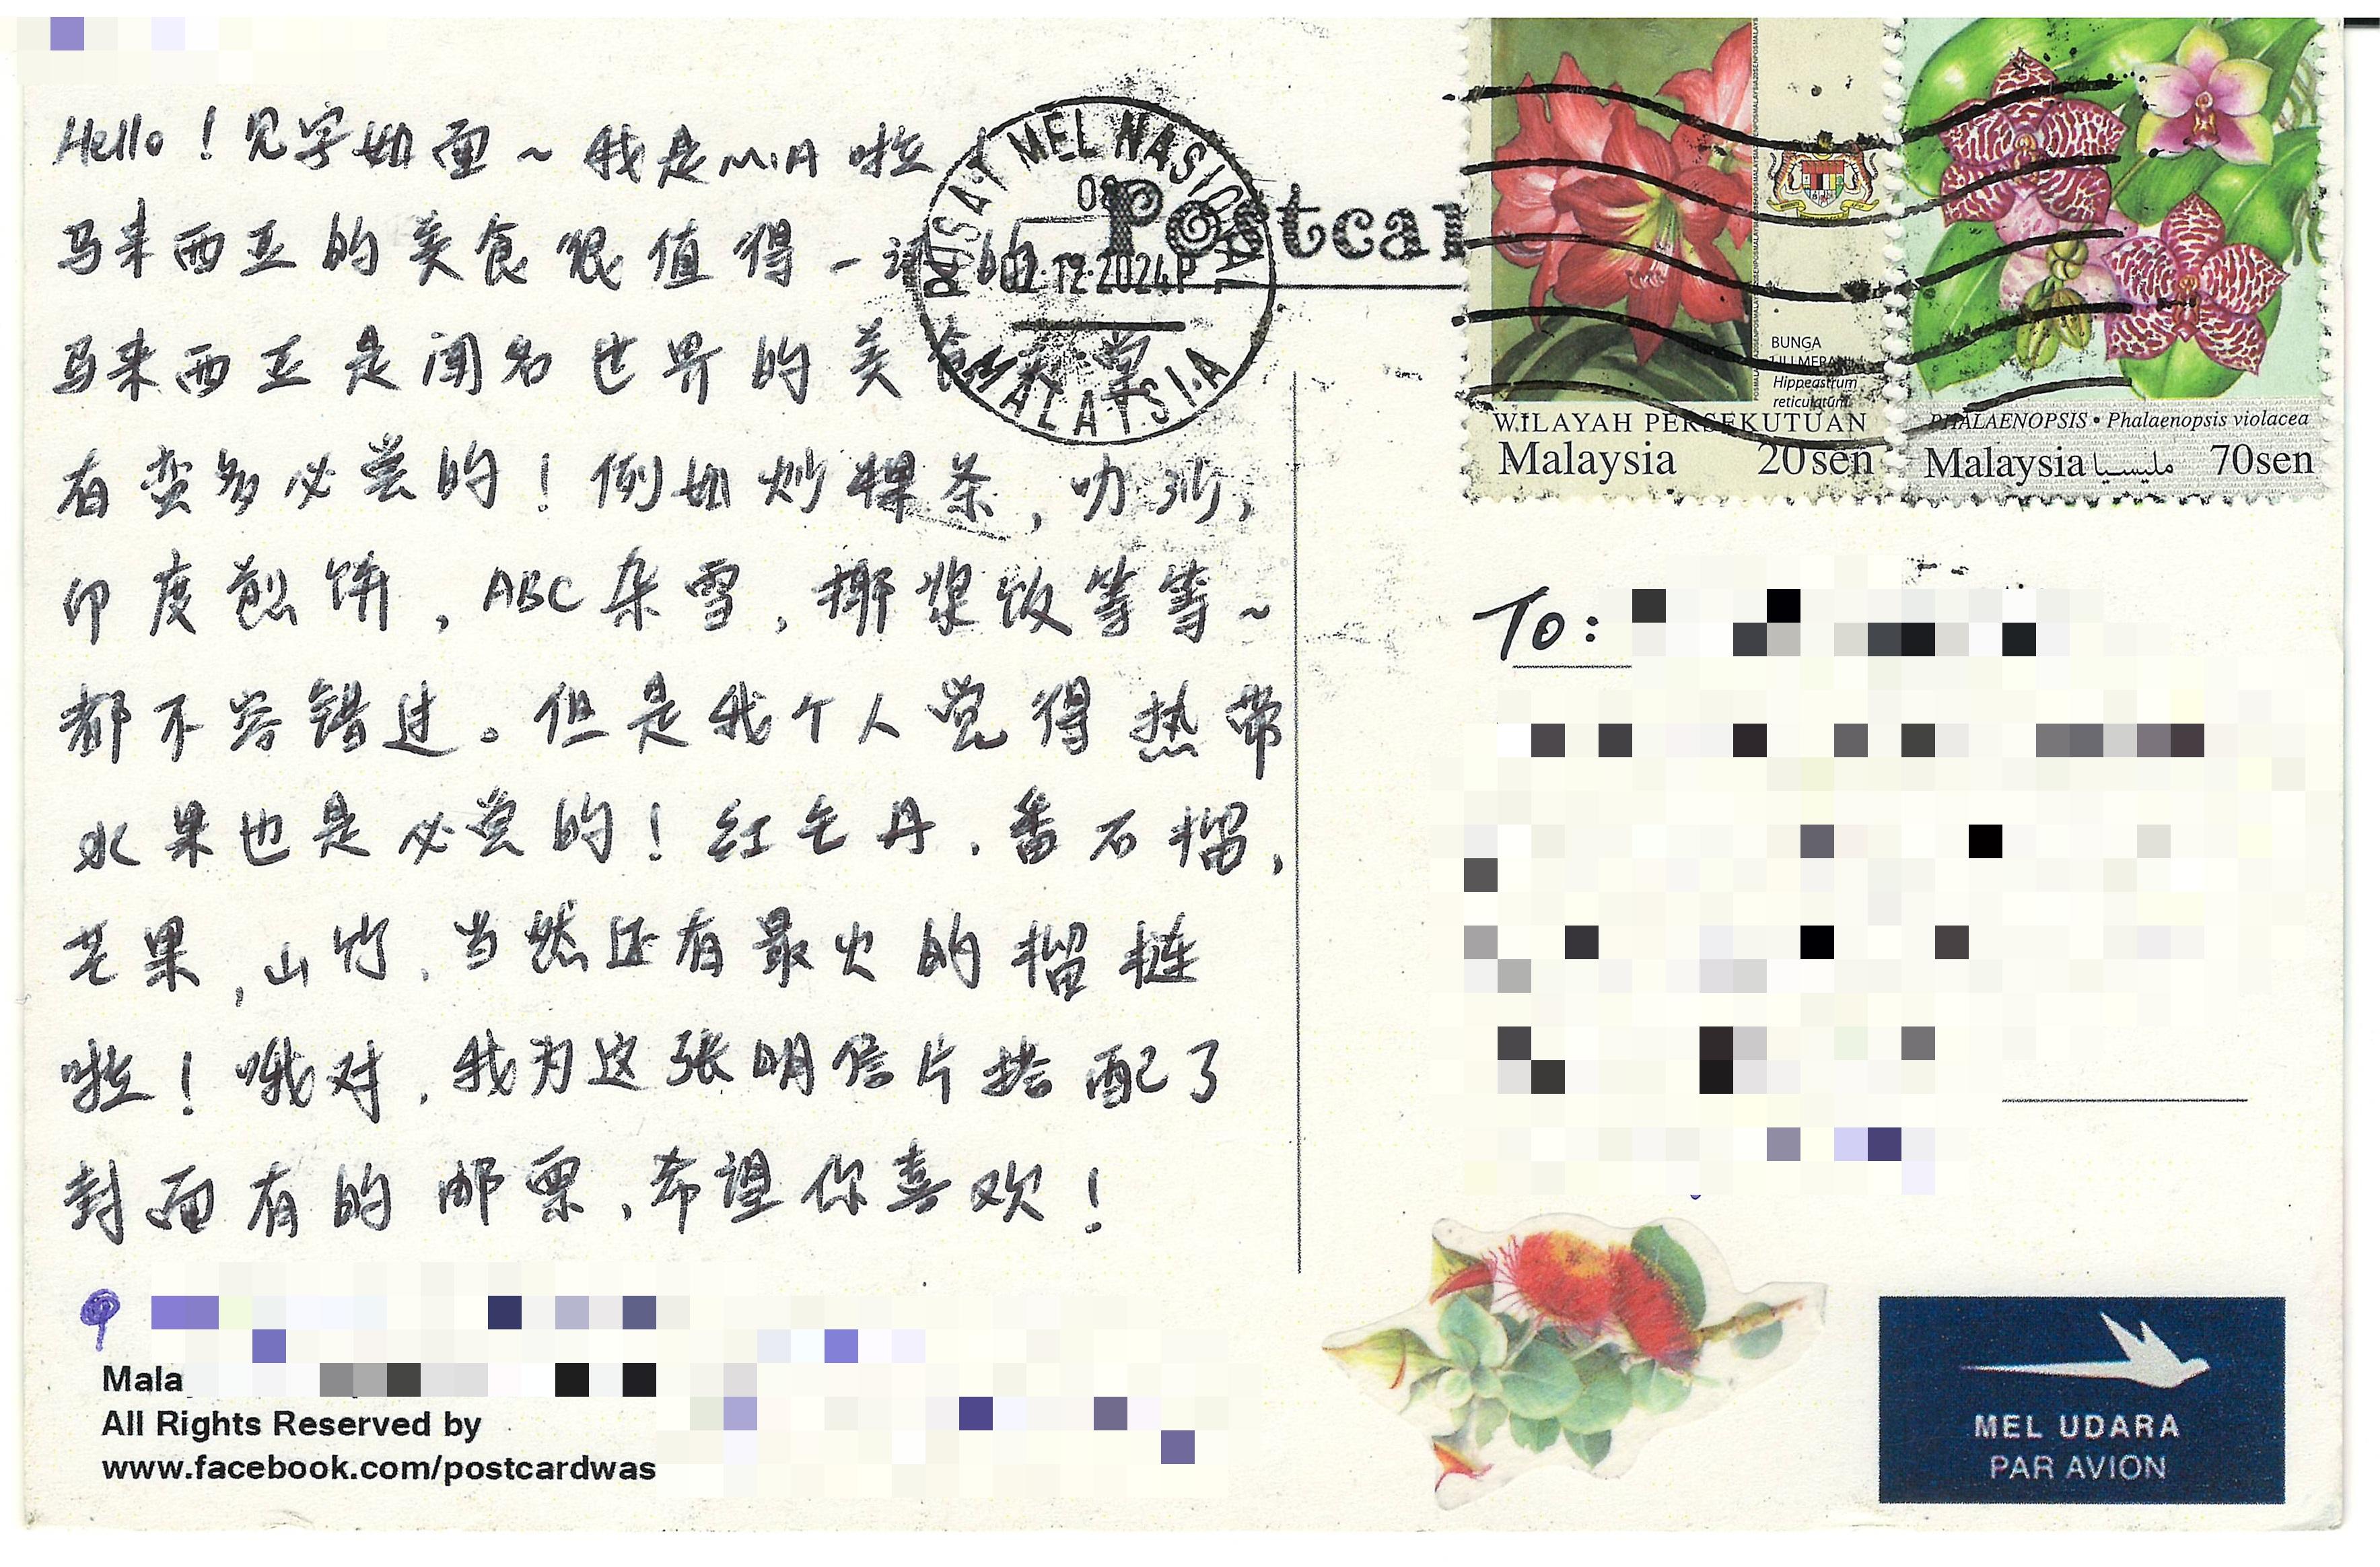 Hello！见字如面～我是MIA啦
马来西亚的美食很值得一试的
马来西亚是闻名世界的美食天堂
有蛮多必尝的！例如炒粿条，叻沙，
印度煎饼，ABC杂雪，椰浆饭等等～
都不容错过。但是我个人觉得热带
水果也是必尝的！红毛丹，番石榴，
芒果，山竹，当然还有最火的榴梿
啦！哦对，我为这张明信片搭配了
封面有的邮票，希望你喜欢！
Mala
All Rights Reserved by
www.facebook.com/postcardwas
PUSAT MEL NASIONAL
08
02.12.2024P
MALAYSIA
Postcar
BUNGA
LILI MERAH
Hippeastrum
reticulatum
WILAYAH PERSEKUTUAN
Malaysia 20sen
PHALAENOPSIS • Phalaenopsis violacea
Malaysia مليسيا 70sen
To:
MEL UDARA
PAR AVION